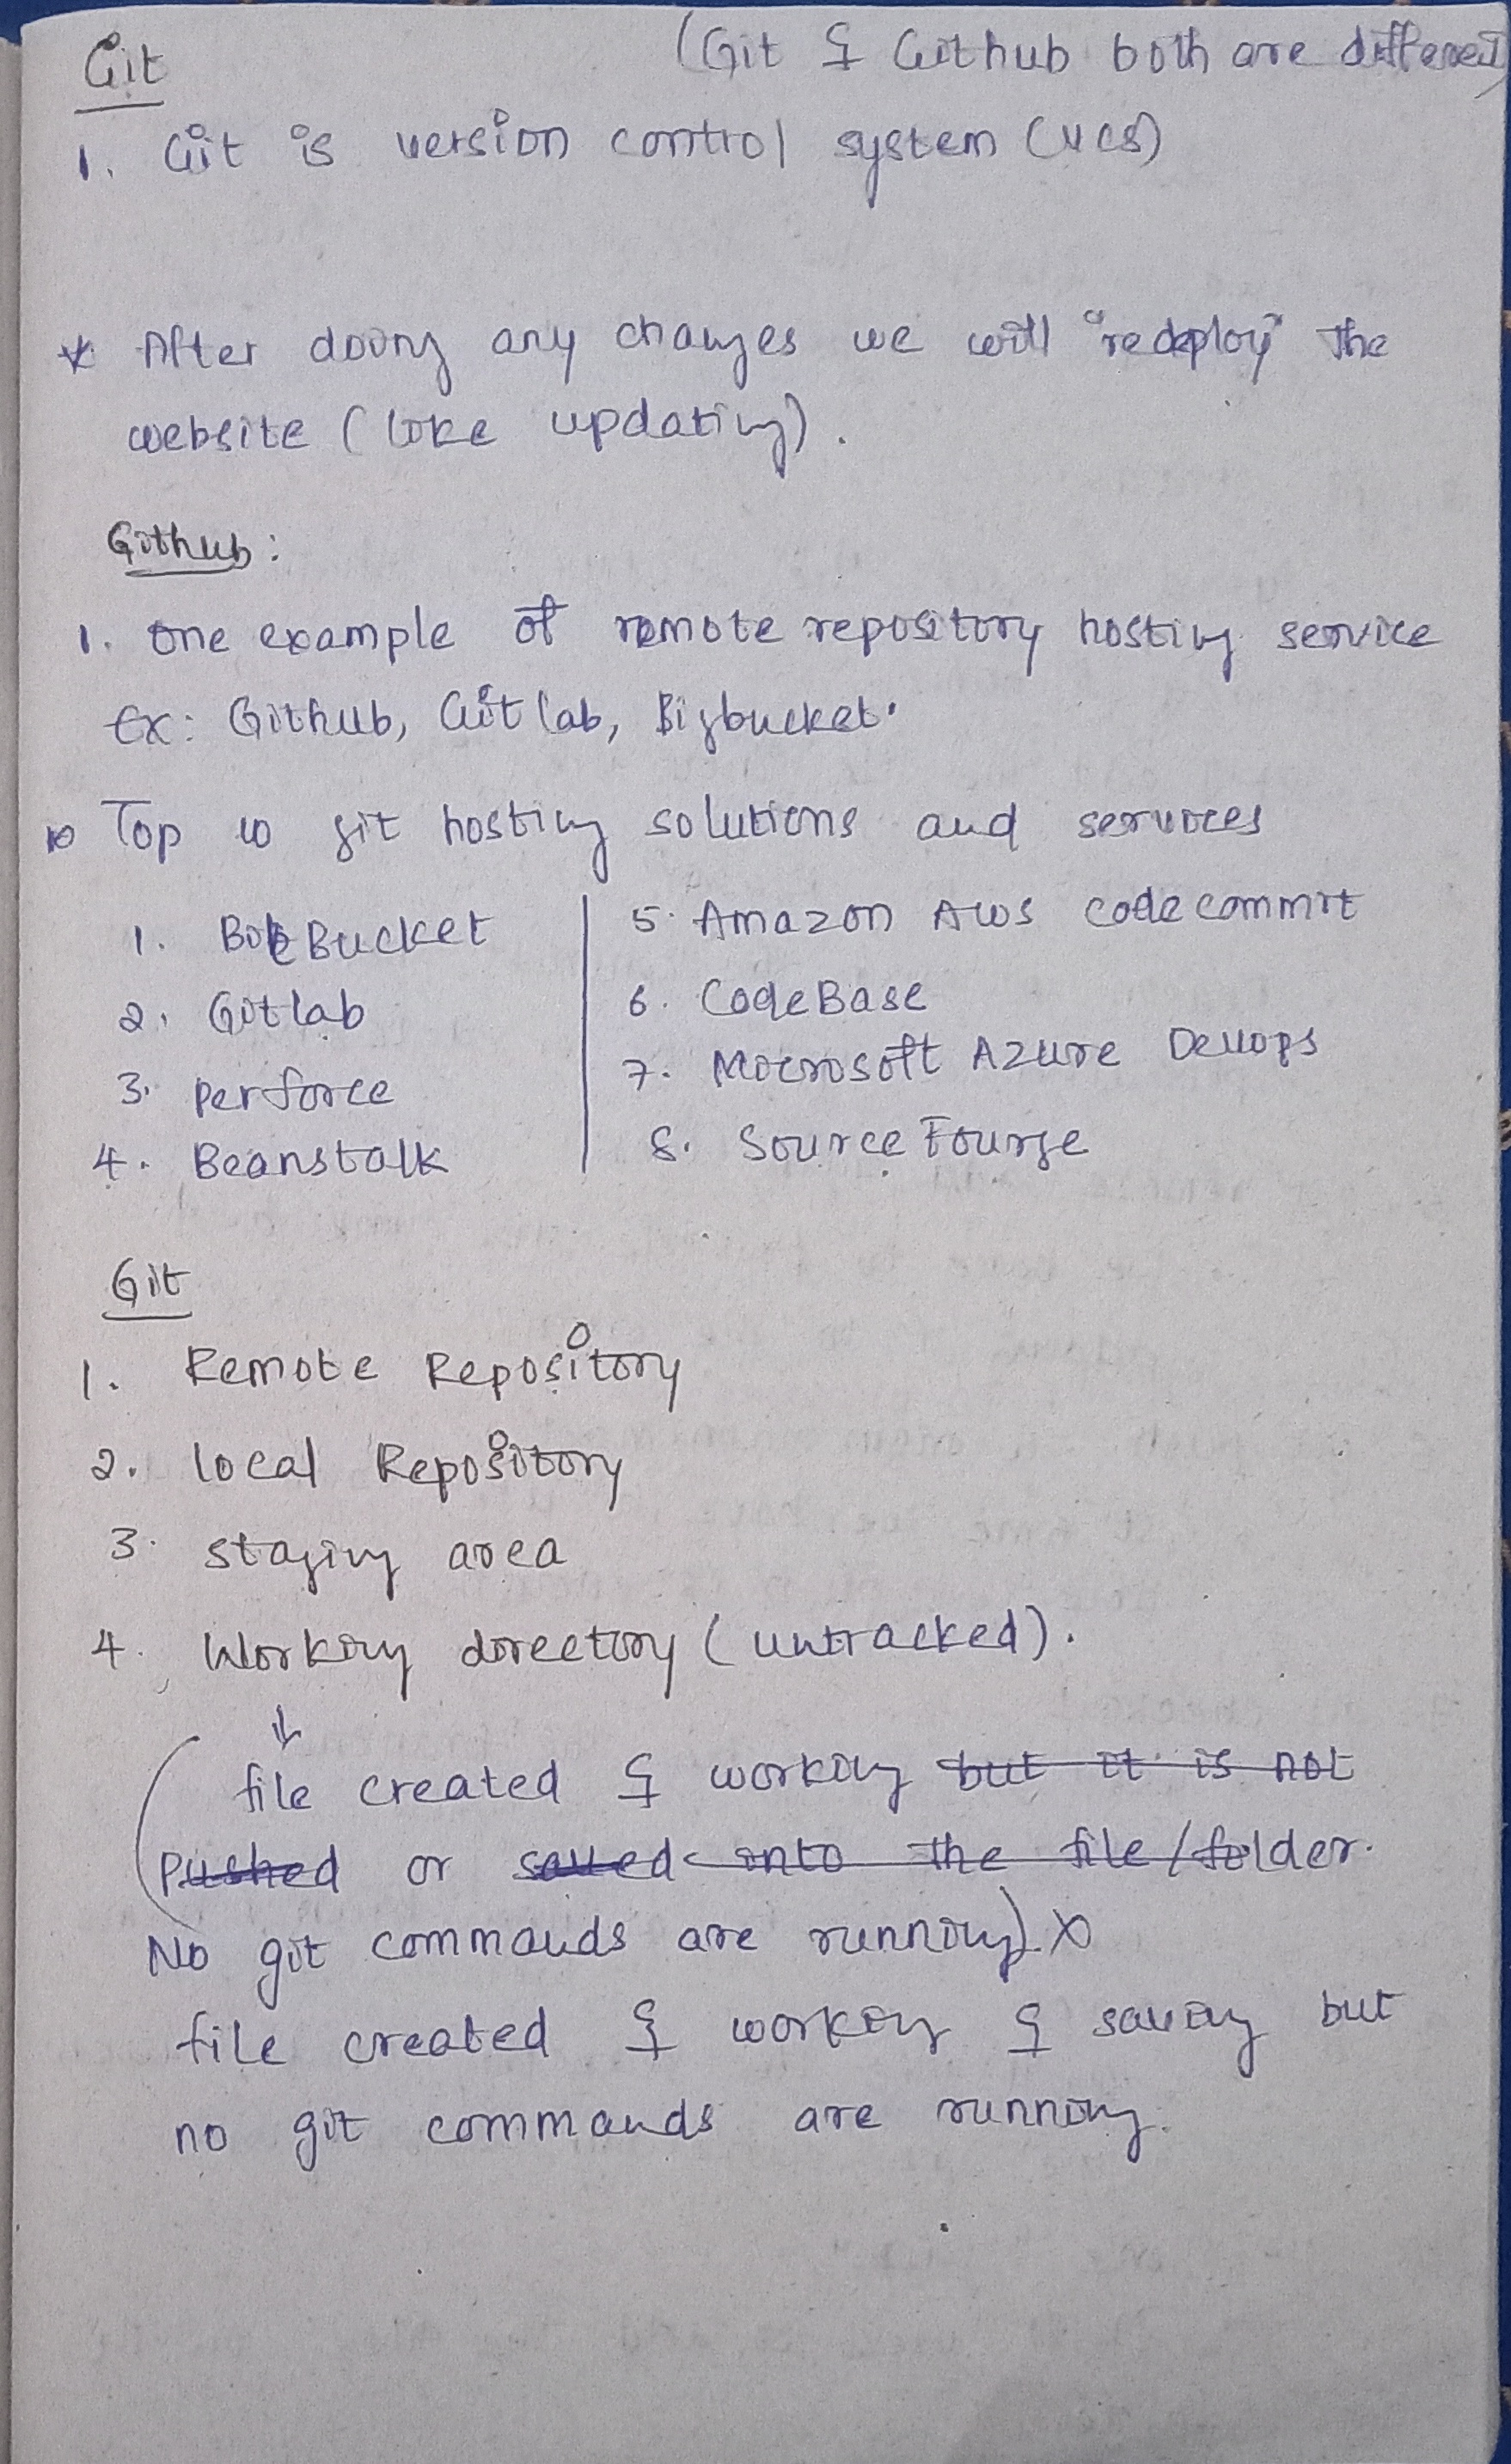 Git (Git & Github both are different)
1. Git is version control system (VCS)
* After doing any changes we will "redeploy" the
website (like updating).
Github:
1. One example of remote repository hosting service
Ex: Github, Gitlab, Bigbucket.
Top 10 git hosting solutions and services
1. BitBucket
2. Gitlab
3. Perforce
4. Beanstalk
5. Amazon AWS codecommit
6. CodeBase
7. Microsoft Azure Devops
8. Source Fourge
Git
1. Remote Repository
2. local Repository
3. staging area
4. Working directory (untracked).
↓
(file created & working but it is not
pushed or saved into the file/folder.
No git commands are running) X
file created & working & saving but
no git commands are running.